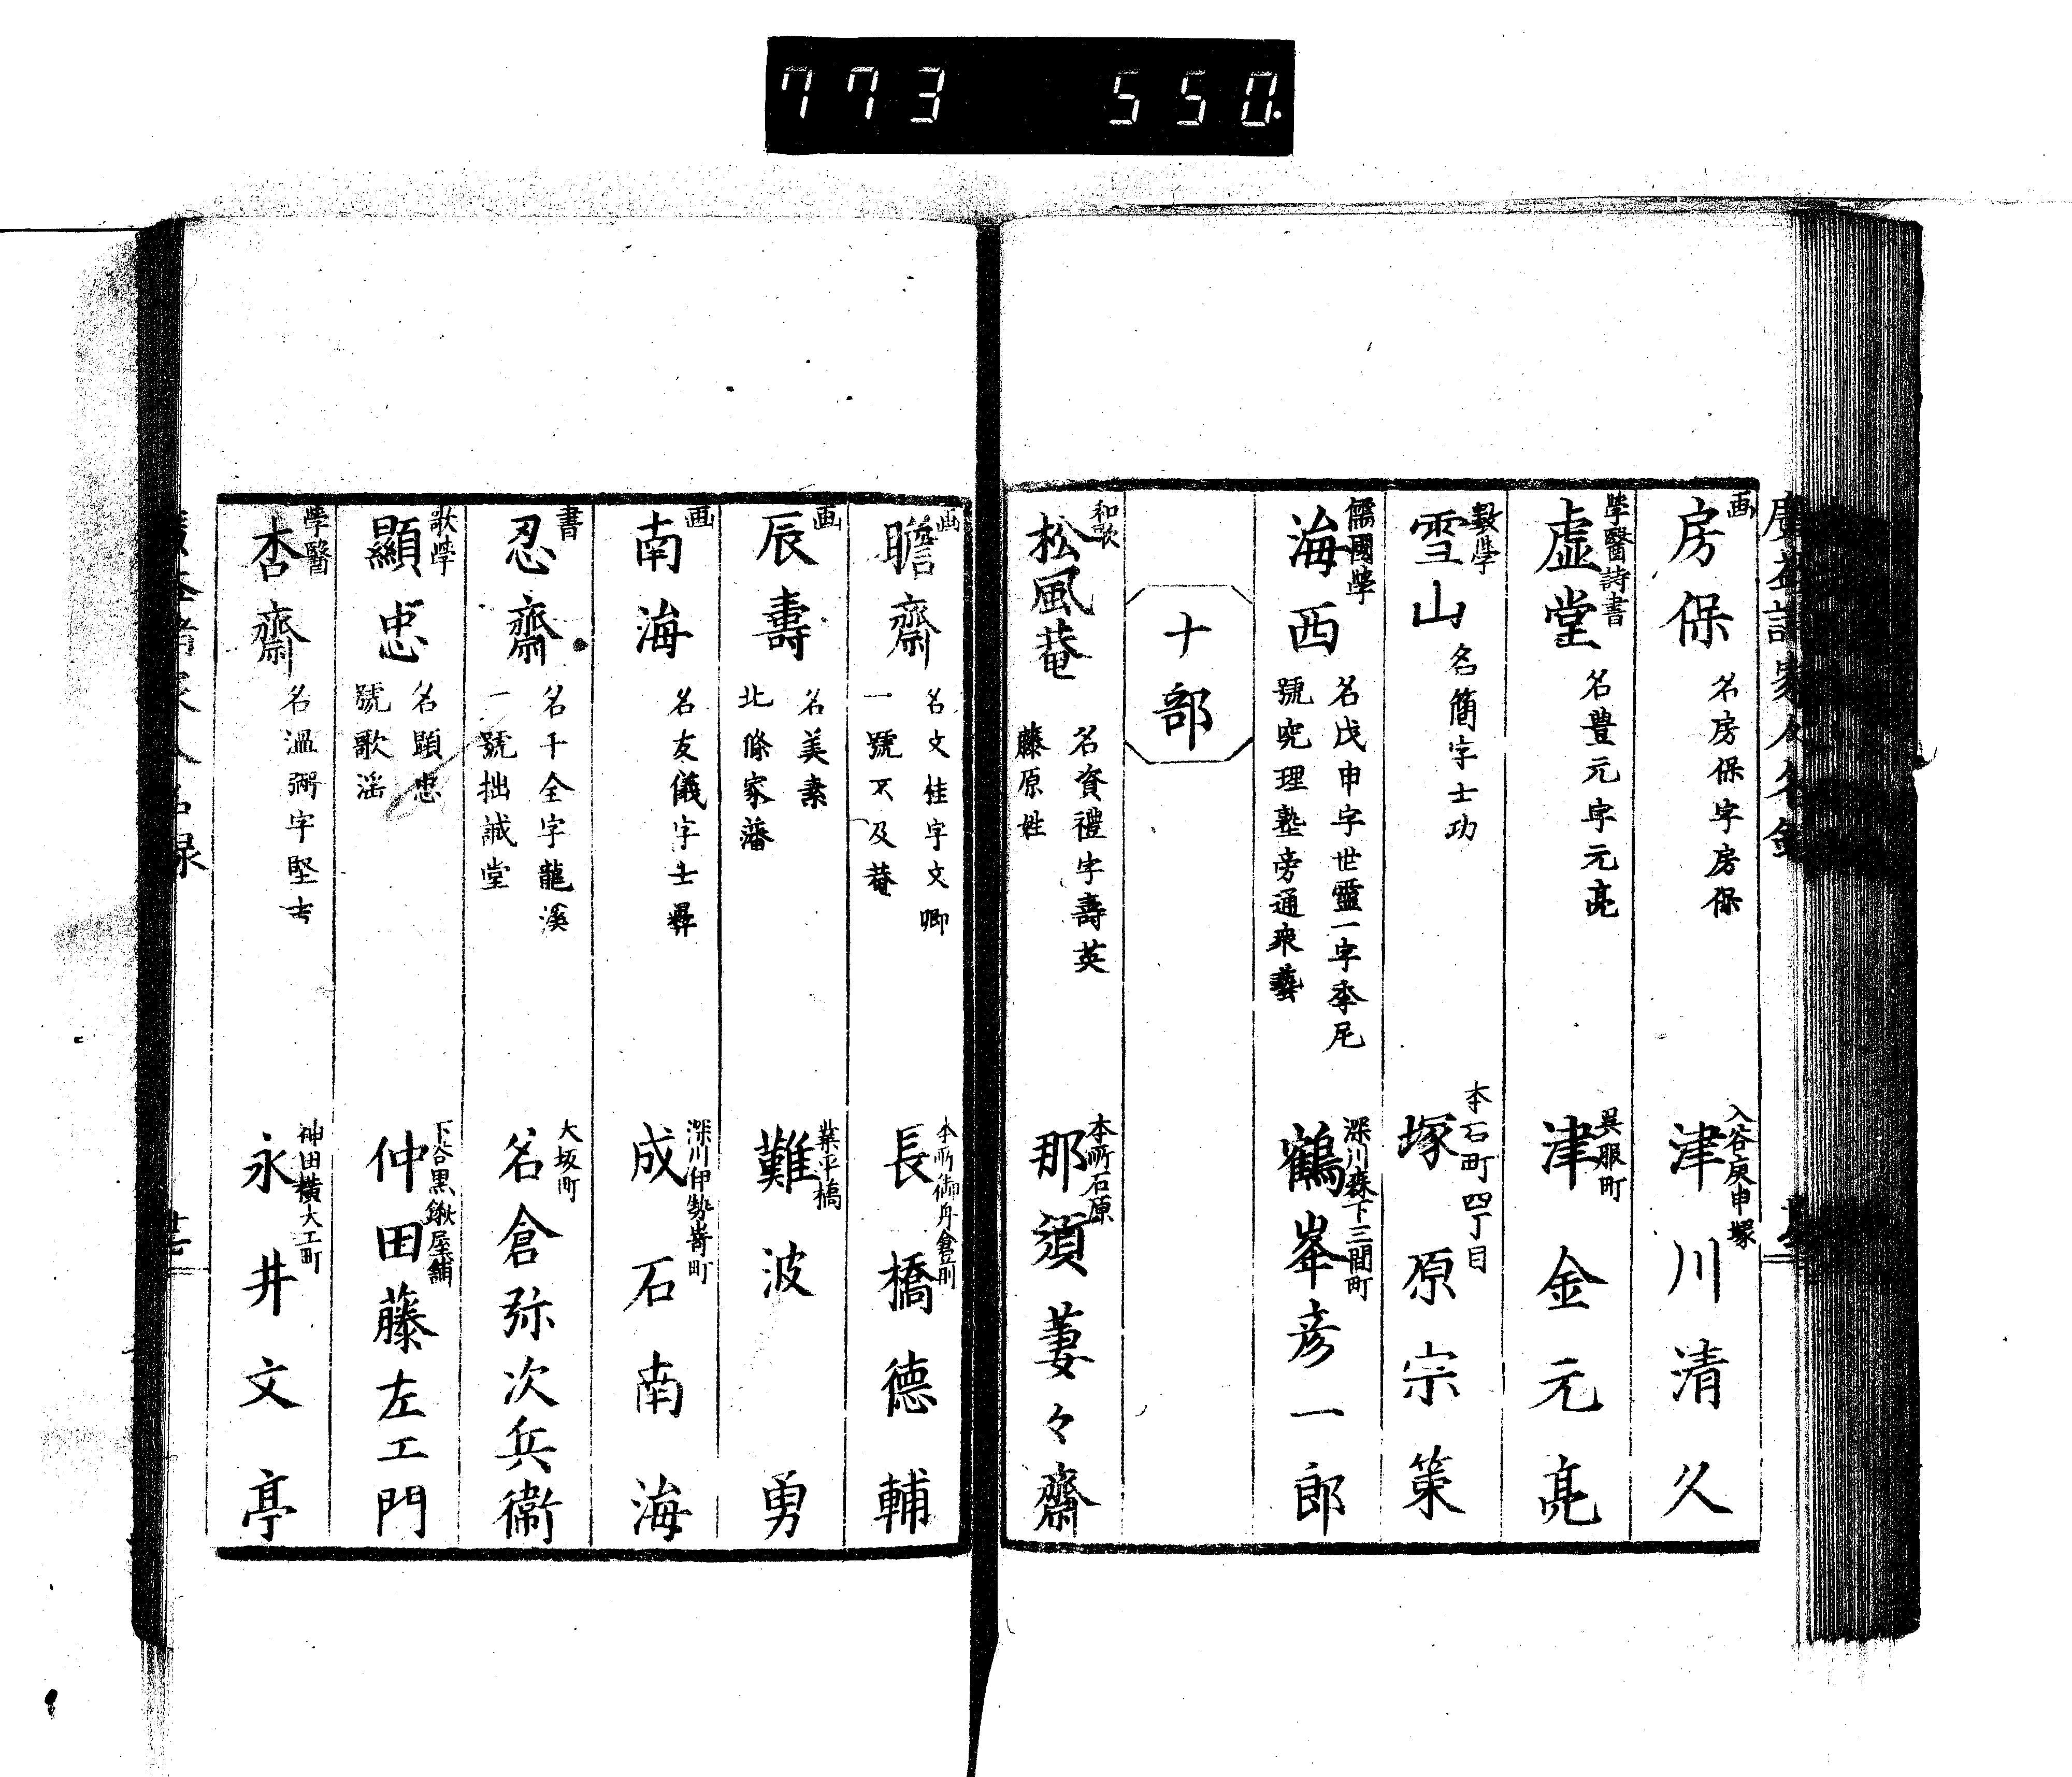 773 550.
廣益諸家人名録
画
房保
名房保字房保
入谷庚申塚
津川清久
學醫詩書
虚堂
名豊元字元亮
呉服町
津金元亮
數學
雪山
名簡字士功
本石町四丁目
塚原宗策
儒國學
海西
名戊申字世靈一字季尾
號究理塾旁通衆藝
深川森下三間町
鶴峯彦一郎
ナ部
和歌
松風菴
名資禮字壽英
藤原姓
本所石原
那須萋々齋
画
瞻齋
名文桂字文卿
一號不及菴
本所御舟倉前
長橋德輔
画
辰壽
名美素
北條家藩
業平橋
難波勇
画
南海
名友儀字士彛
深川伊勢嵜町
成石南海
書
忍齋
名千全字龍溪
一號拙誠堂
大坂町
名倉弥次兵衞
歌學
顯忠
名顕忠
號歌滛
下谷黒鍬屋舗
仲田藤左エ門
學醫
杏齋
名温弼字堅吉
神田横大工町
永井文亭
廣益諸家人名録